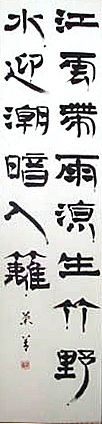 江雲帶雨涼生竹野
水迎潮暗入籬